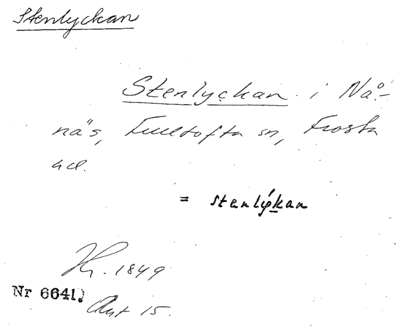 Stenlyckan
Stenlyckan i Nå-
näs, Fulltofta sn, Frosta
hd.
= stenlýkan
Hr. 1849
Nr 6641.
Ant 15.